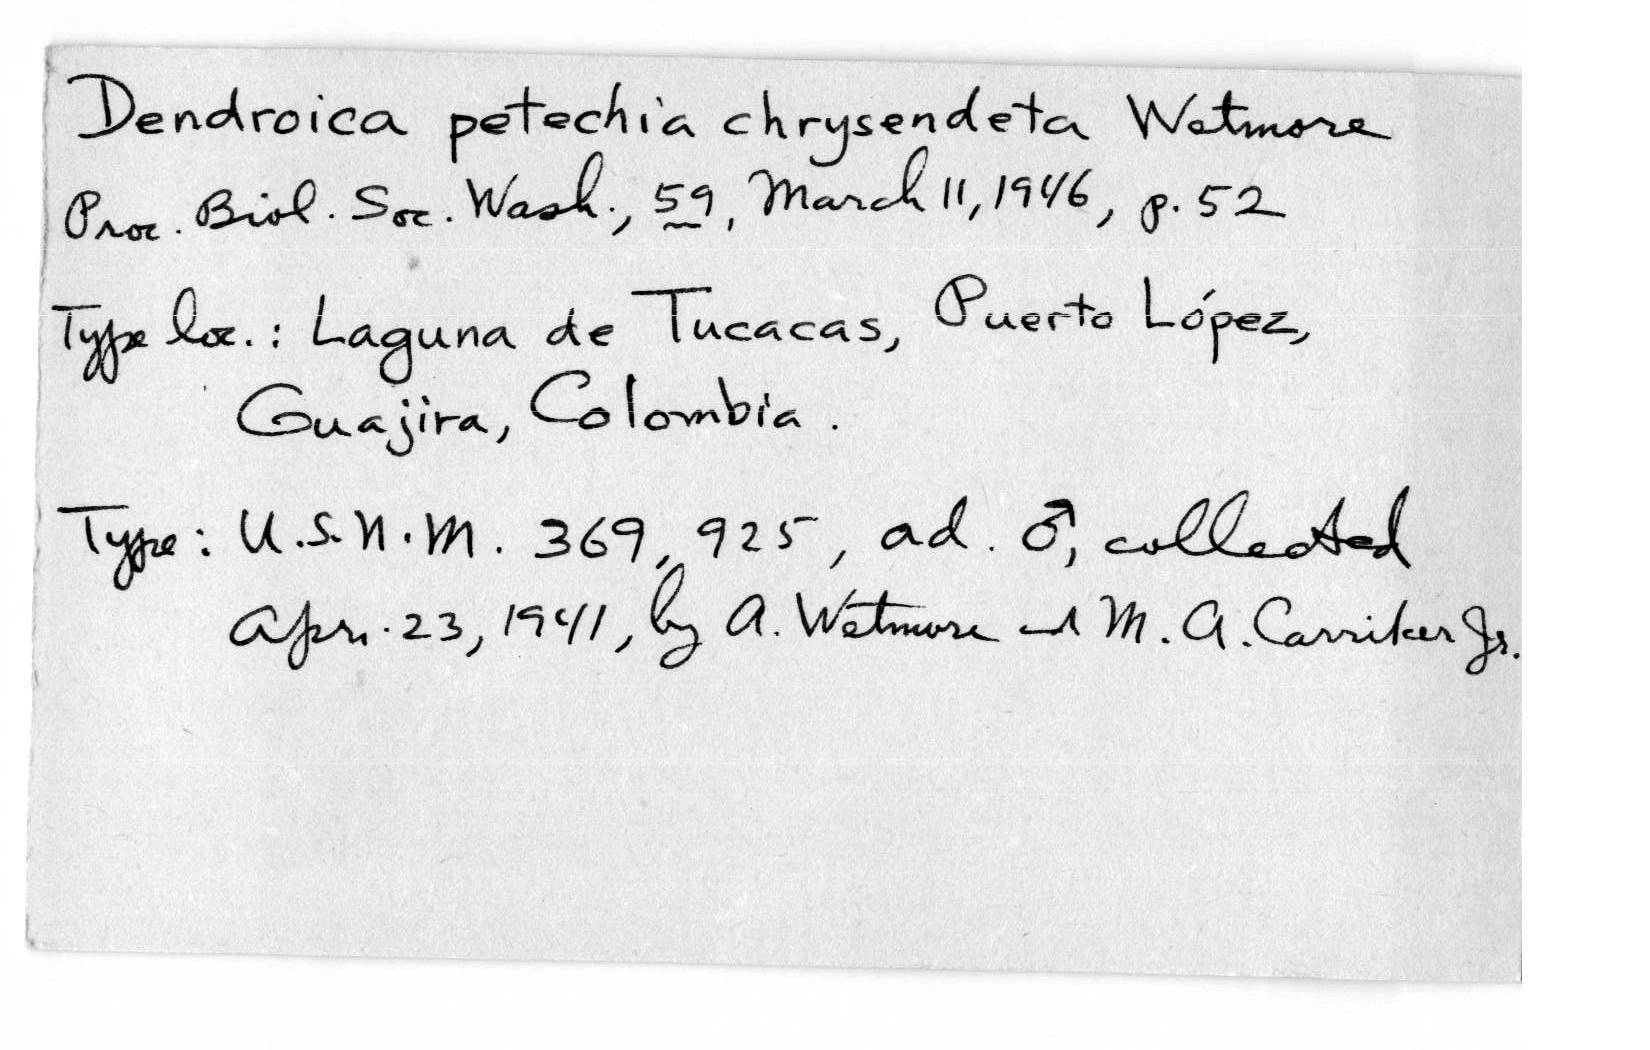 Dendroica petechia chrysendeta Wetmore
Proc. Biol. Soc. Wash., 59, March 11, 1946, p. 52
Type loc.: Laguna de Tucacas, Puerto López,
Guajira, Colombia.
Type: U.S.N.M. 369,925, ad. ♂, collected
Apr. 23, 1941, by A. Wetmore and M. A. Carriker Jr.